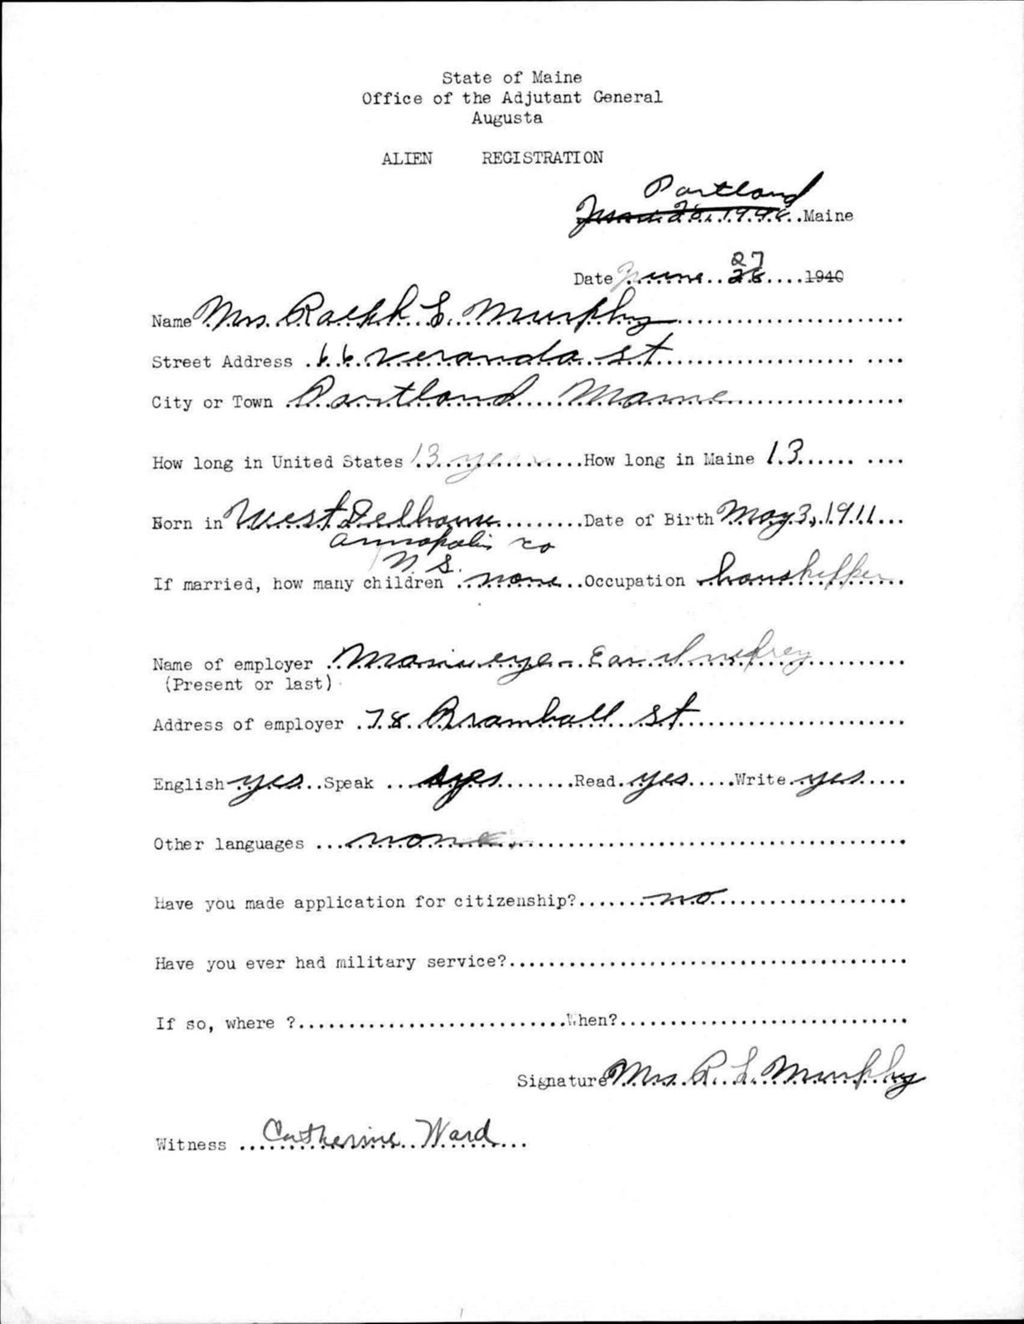 State of Maine
Office of the Adjutant General
Augusta
ALIEN REGISTRATION
Portland
June 28, 1940..Maine
27
Date June..28....1940
Name Mrs. Ralph L. Murphy
Street Address .66 veranda st
City or Town .Portland....Maine
How long in United States 13 years......How long in Maine 13...... ....
Born in West Delhousie.........Date of Birth May 3, 1911...
Annapolis co
N.S.
If married, how many children .none..Occupation
Name of employer
(Present or last)
Address of employer .78 Bramhall st
English yes..Speak ...yes........Read.yes.....Write.yes....
Other languages ...none
Have you made application for citizenship?.......no
Have you ever had military service?
If so, where ?...........................When?
Signature Mrs. R. L. Murphy
Witness ...Catherine Ward...